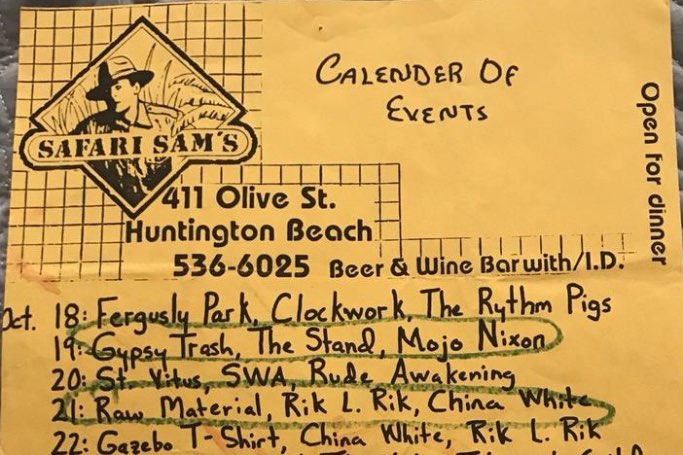 CALENDER OF
EVENTS
SAFARI SAM'S
411 Olive St.
Huntington Beach
536-6025 Beer & Wine Bar with/I.D.
Open for dinner
Oct. 18: Fergusly Park, Clockwork, The Rythm Pigs
19: Gypsy Trash, The Stand, Mojo Nixon
20: St. Vitus, SWA, Rude Awakening
21: Raw Material, Rik L. Rik, China White
22: Gazebo T-Shirt, China White, Rik L. Rik